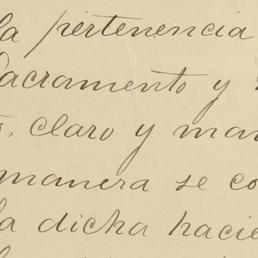 la pertenencia
Sacramento y
claro y man
manera se co
la dicha hacie